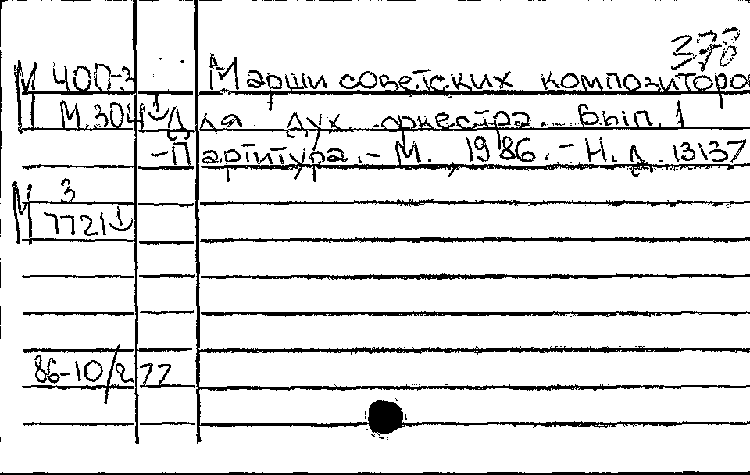 378
М 400-3 Марши советских композиторо
М.304 Для дух. оркестра. Вып. 1
- Партитура. - М., 1986. - Н. д. 13137
М 3
7721
86-10/277